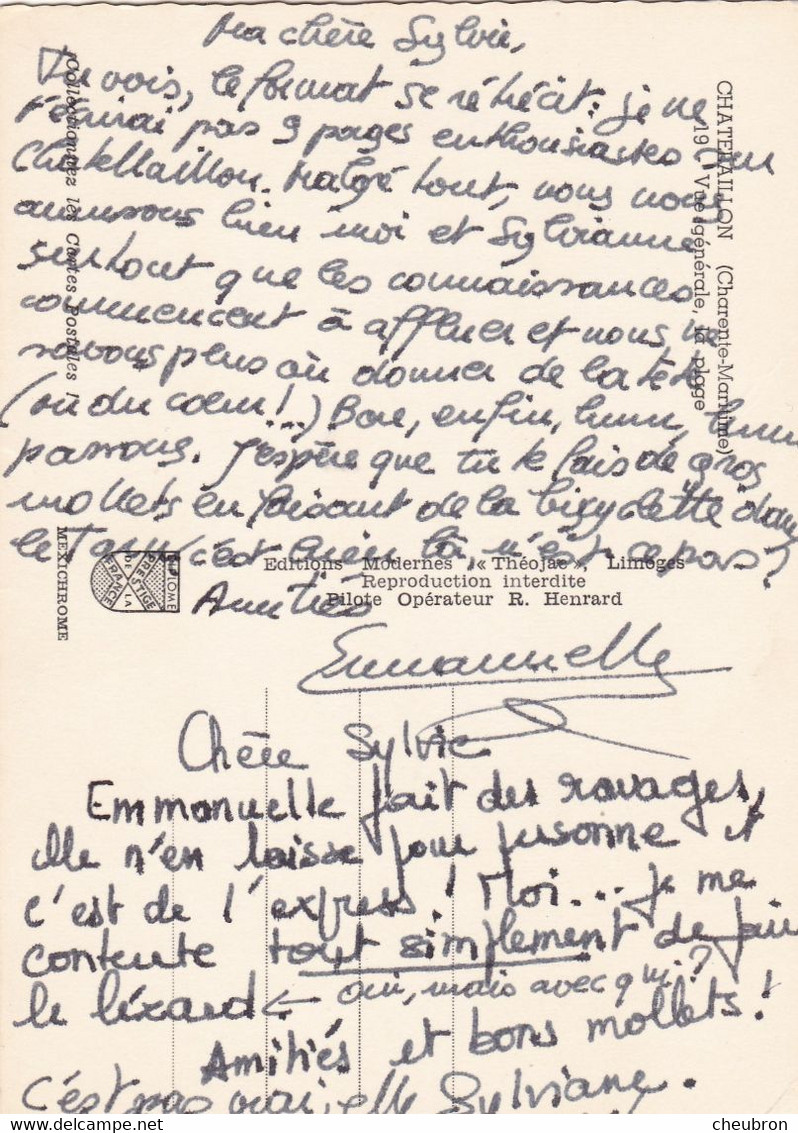 Ma chère Sylvie,
Tu vois, le format se rétrécit : je ne
t'écrirai pas 9 pages enthousiastes sur
Chatellaillon. Malgré tout, nous nous
amusons bien moi et Sylvianne
surtout que les connaissances
commencent à affluer et nous ne
savons plus où donner de la tête
(ou du cœur !...) Bon, enfin, hum, hum
passons. J'espère que tu te fais de gros
mollets en faisant de la bicyclette dans
le Tarn, c'est bien là n'est ce pas ?
Amitiés
Emmanuelle
Chère Sylvie
Emmanuelle fait des ravages,
elle n'en laisse pour personne et
c'est de l'express ! Moi... je me
contente tout simplement de faire
le lézard ← oui, mais avec qui ?
Amitiés et bons mollets !
C'est pas vrai, elle Sylviane.
CHATELAILLON (Charente-Maritime)
19 Vue générale, la plage
"Collectionnez les Cartes Postales !"
MEXICHROME
DIPLOME
PRESTIGE
DE LA
FRANCE
Editions Modernes « Théojac », Limoges
Reproduction interdite
Pilote Opérateur R. Henrard
cheubron